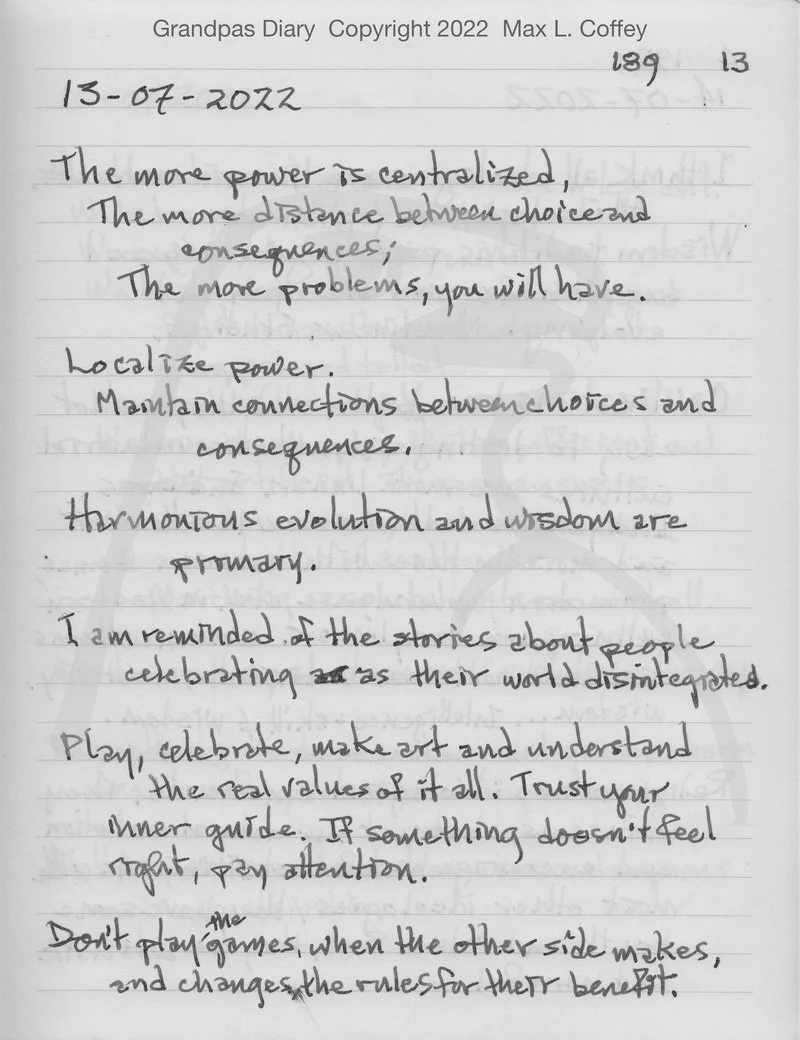 Grandpas Diary Copyright 2022 Max L. Coffey
189 13
13-07-2022
The more power is centralized,
The more distance between choice and
consequences;
The more problems, you will have.
Localize power.
Maintain connections between choices and
consequences.
Harmonious evolution and wisdom are
primary.
I am reminded of the stories about people
celebrating as as their world disintegrated.
Play, celebrate, make art and understand
the real values of it all. Trust your
inner guide. If something doesn't feel
right, pay attention.
Don't play the games, when the other side makes,
and changes, the rules for their benefit.